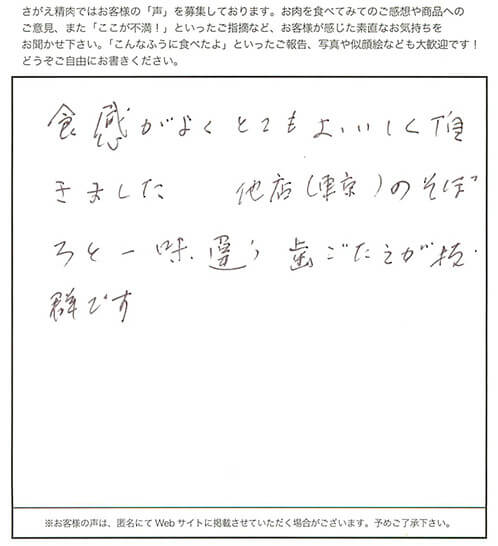 さがえ精肉ではお客様の「声」を募集しております。お肉を食べてみてのご感想や商品への
ご意見、また「ここが不満！」といったご指摘など、お客様が感じた素直なお気持ちを
お聞かせ下さい。「こんなふうに食べたよ」といったご報告、写真や似顔絵なども大歓迎です！
どうぞご自由にお書きください。
食感がよくとてもおいしく頂
きました 他店(東京)のそぼ
ろと一味違う歯ごたえが抜
群です
※お客様の声は、匿名にてWebサイトに掲載させていただく場合がございます。予めご了承下さい。